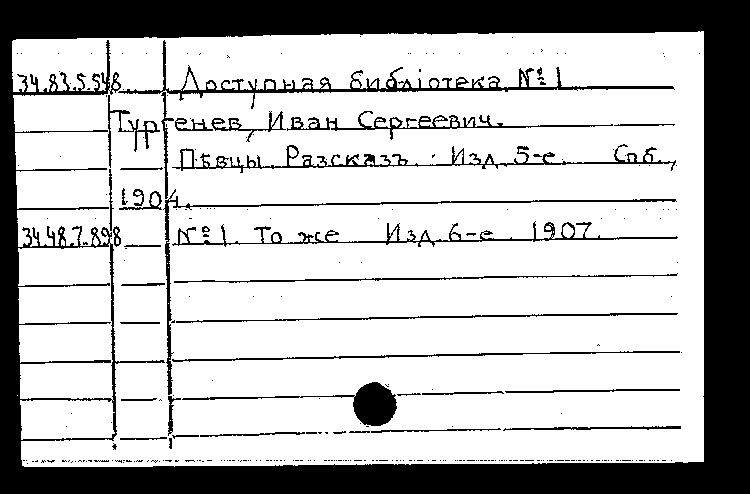 34.83.5.548 Доступная библіотека №1
Тургенев, Иван Сергеевич.
Пѣвцы. Разсказъ. Изд. 5-е. Спб.,
1904.
34.48.7.898 №1. То же Изд. 6-е 1907.